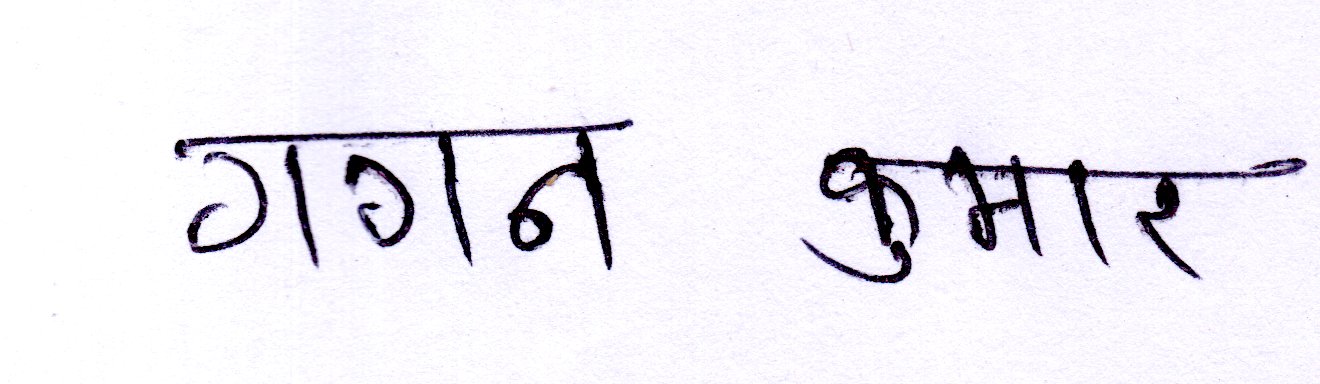 गगन कुमार